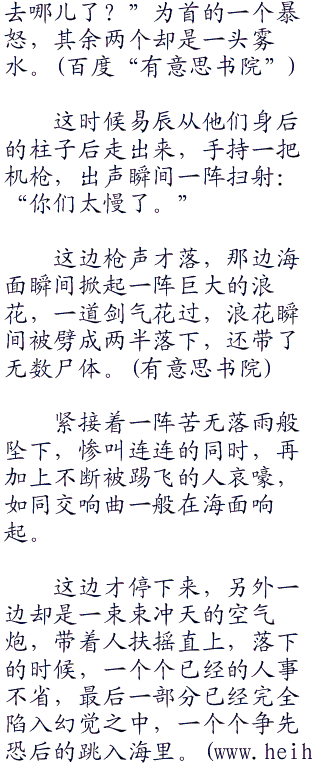 去哪儿了？”为首的一个暴
怒，其余两个却是一头雾
水。(百度“有意思书院”)
这时候易辰从他们身后
的柱子后走出来，手持一把
机枪，出声瞬间一阵扫射：
“你们太慢了。”
这边枪声才落，那边海
面瞬间掀起一阵巨大的浪
花，一道剑气花过，浪花瞬
间被劈成两半落下，还带了
无数尸体。(有意思书院)
紧接着一阵苦无落雨般
坠下，惨叫连连的同时，再
加上不断被踢飞的人哀嚎，
如同交响曲一般在海面响
起。
这边才停下来，另外一
边却是一束束冲天的空气
炮，带着人扶摇直上，落下
的时候，一个个已经的人事
不省，最后一部分已经完全
陷入幻觉之中，一个个争先
恐后的跳入海里。(www.heih